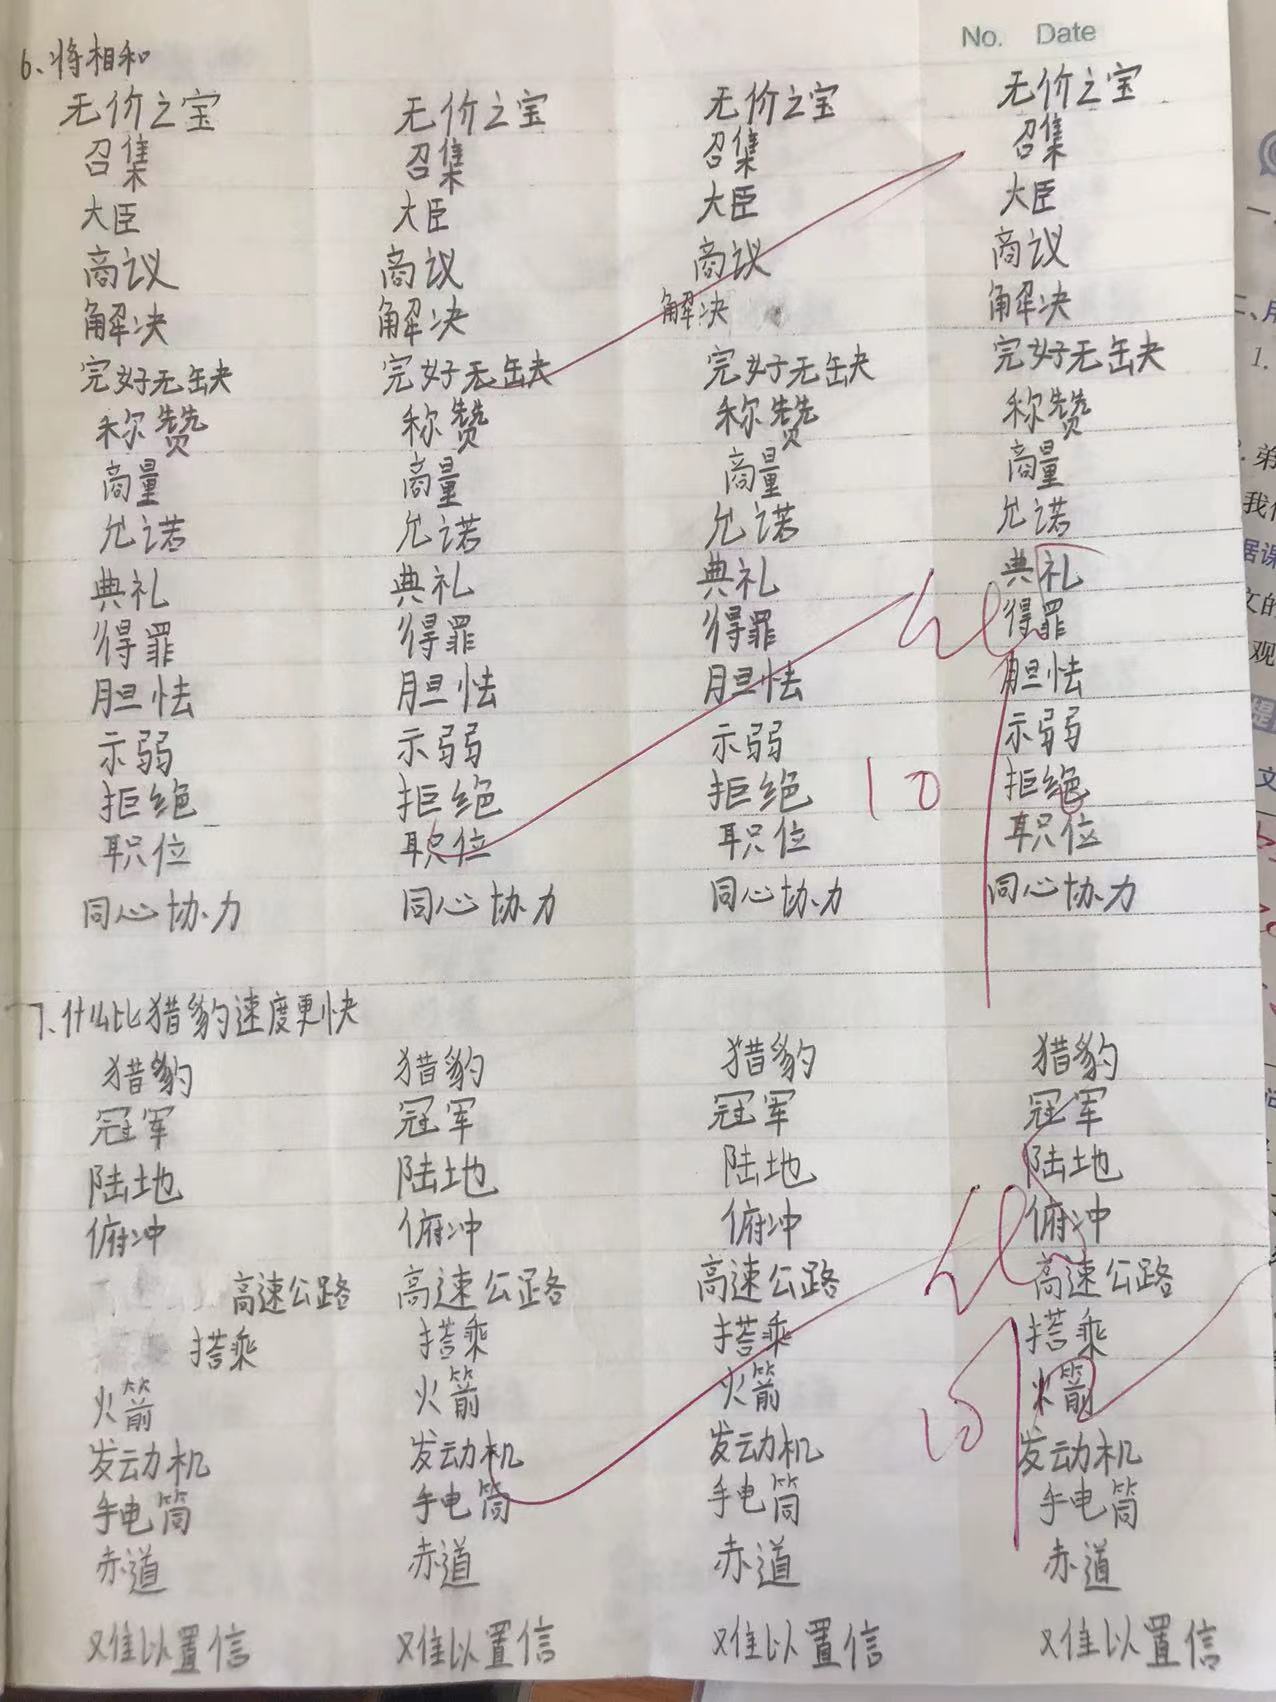 No. Date
6、将相和
无价之宝 无价之宝 无价之宝 无价之宝
召集 召集 召集 召集
大臣 大臣 大臣 大臣
商议 商议 商议 商议
解决 解决 解决 解决
完好无缺 完好无缺 完好无缺 完好无缺
称赞 称赞 称赞 称赞
商量 商量 商量 商量
允诺 允诺 允诺 允诺
典礼 典礼 典礼 典礼
得罪 得罪 得罪 得罪
胆怯 胆怯 胆怯 胆怯
示弱 示弱 示弱 示弱
拒绝 拒绝 拒绝 10 拒绝
职位 职位 职位 职位
同心协力 同心协力 同心协力 同心协力
7、什么比猎豹速度更快
猎豹 猎豹 猎豹 猎豹
冠军 冠军 冠军 冠军
陆地 陆地 陆地 陆地
俯冲 俯冲 俯冲 俯冲
高速公路 高速公路 高速公路 高速公路
搭乘 搭乘 搭乘 搭乘
火箭 火箭 火箭 火箭
发动机 发动机 发动机 10 发动机
手电筒 手电筒 手电筒 手电筒
赤道 赤道 赤道 赤道
难以置信 难以置信 难以置信 难以置信